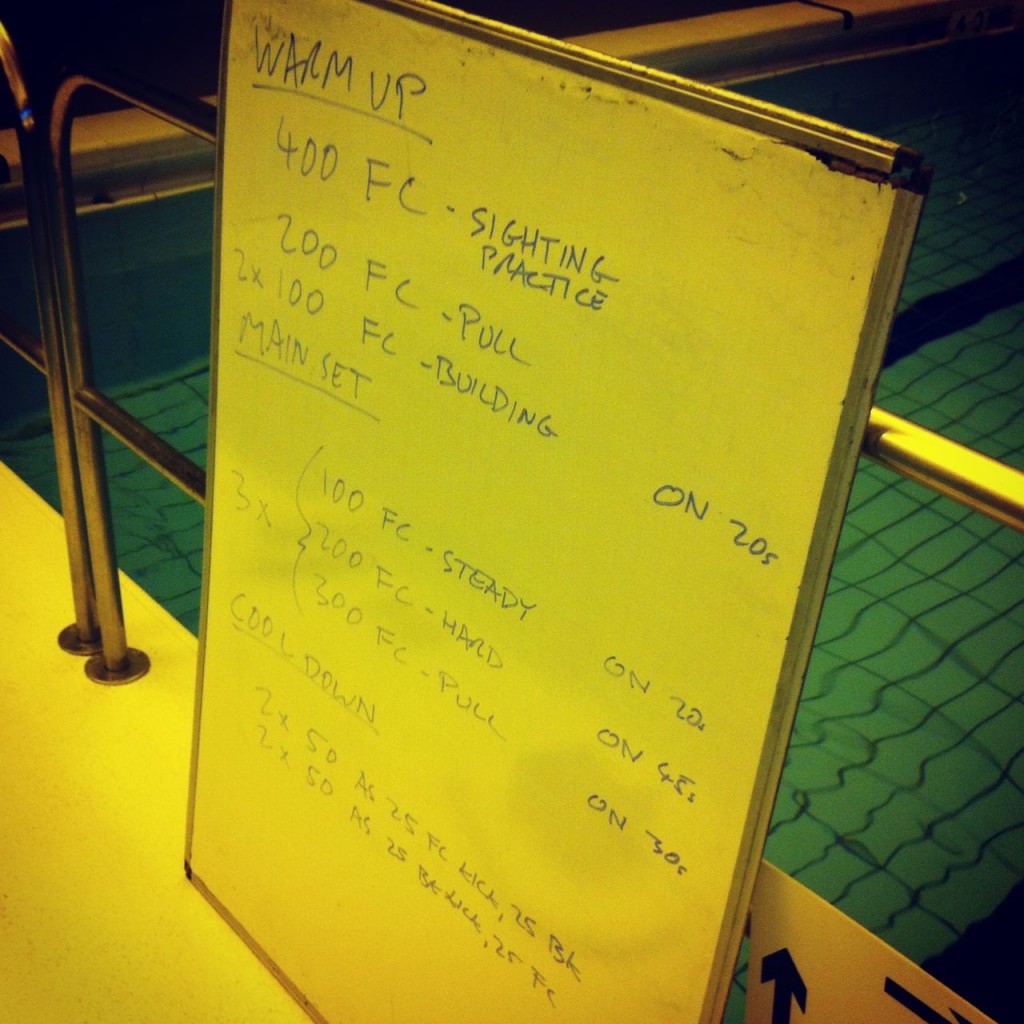 WARM UP
400 FC - SIGHTING
PRACTICE
200 FC - PULL
2x100 FC - BUILDING ON 20s
MAIN SET
3x
100 FC - STEADY ON 20s
200 FC - HARD ON 45s
300 FC - PULL ON 30s
COOL DOWN
2x 50 AS 25 FC KICK, 25 BK
2x 50 AS 25 BK KICK, 25 FC